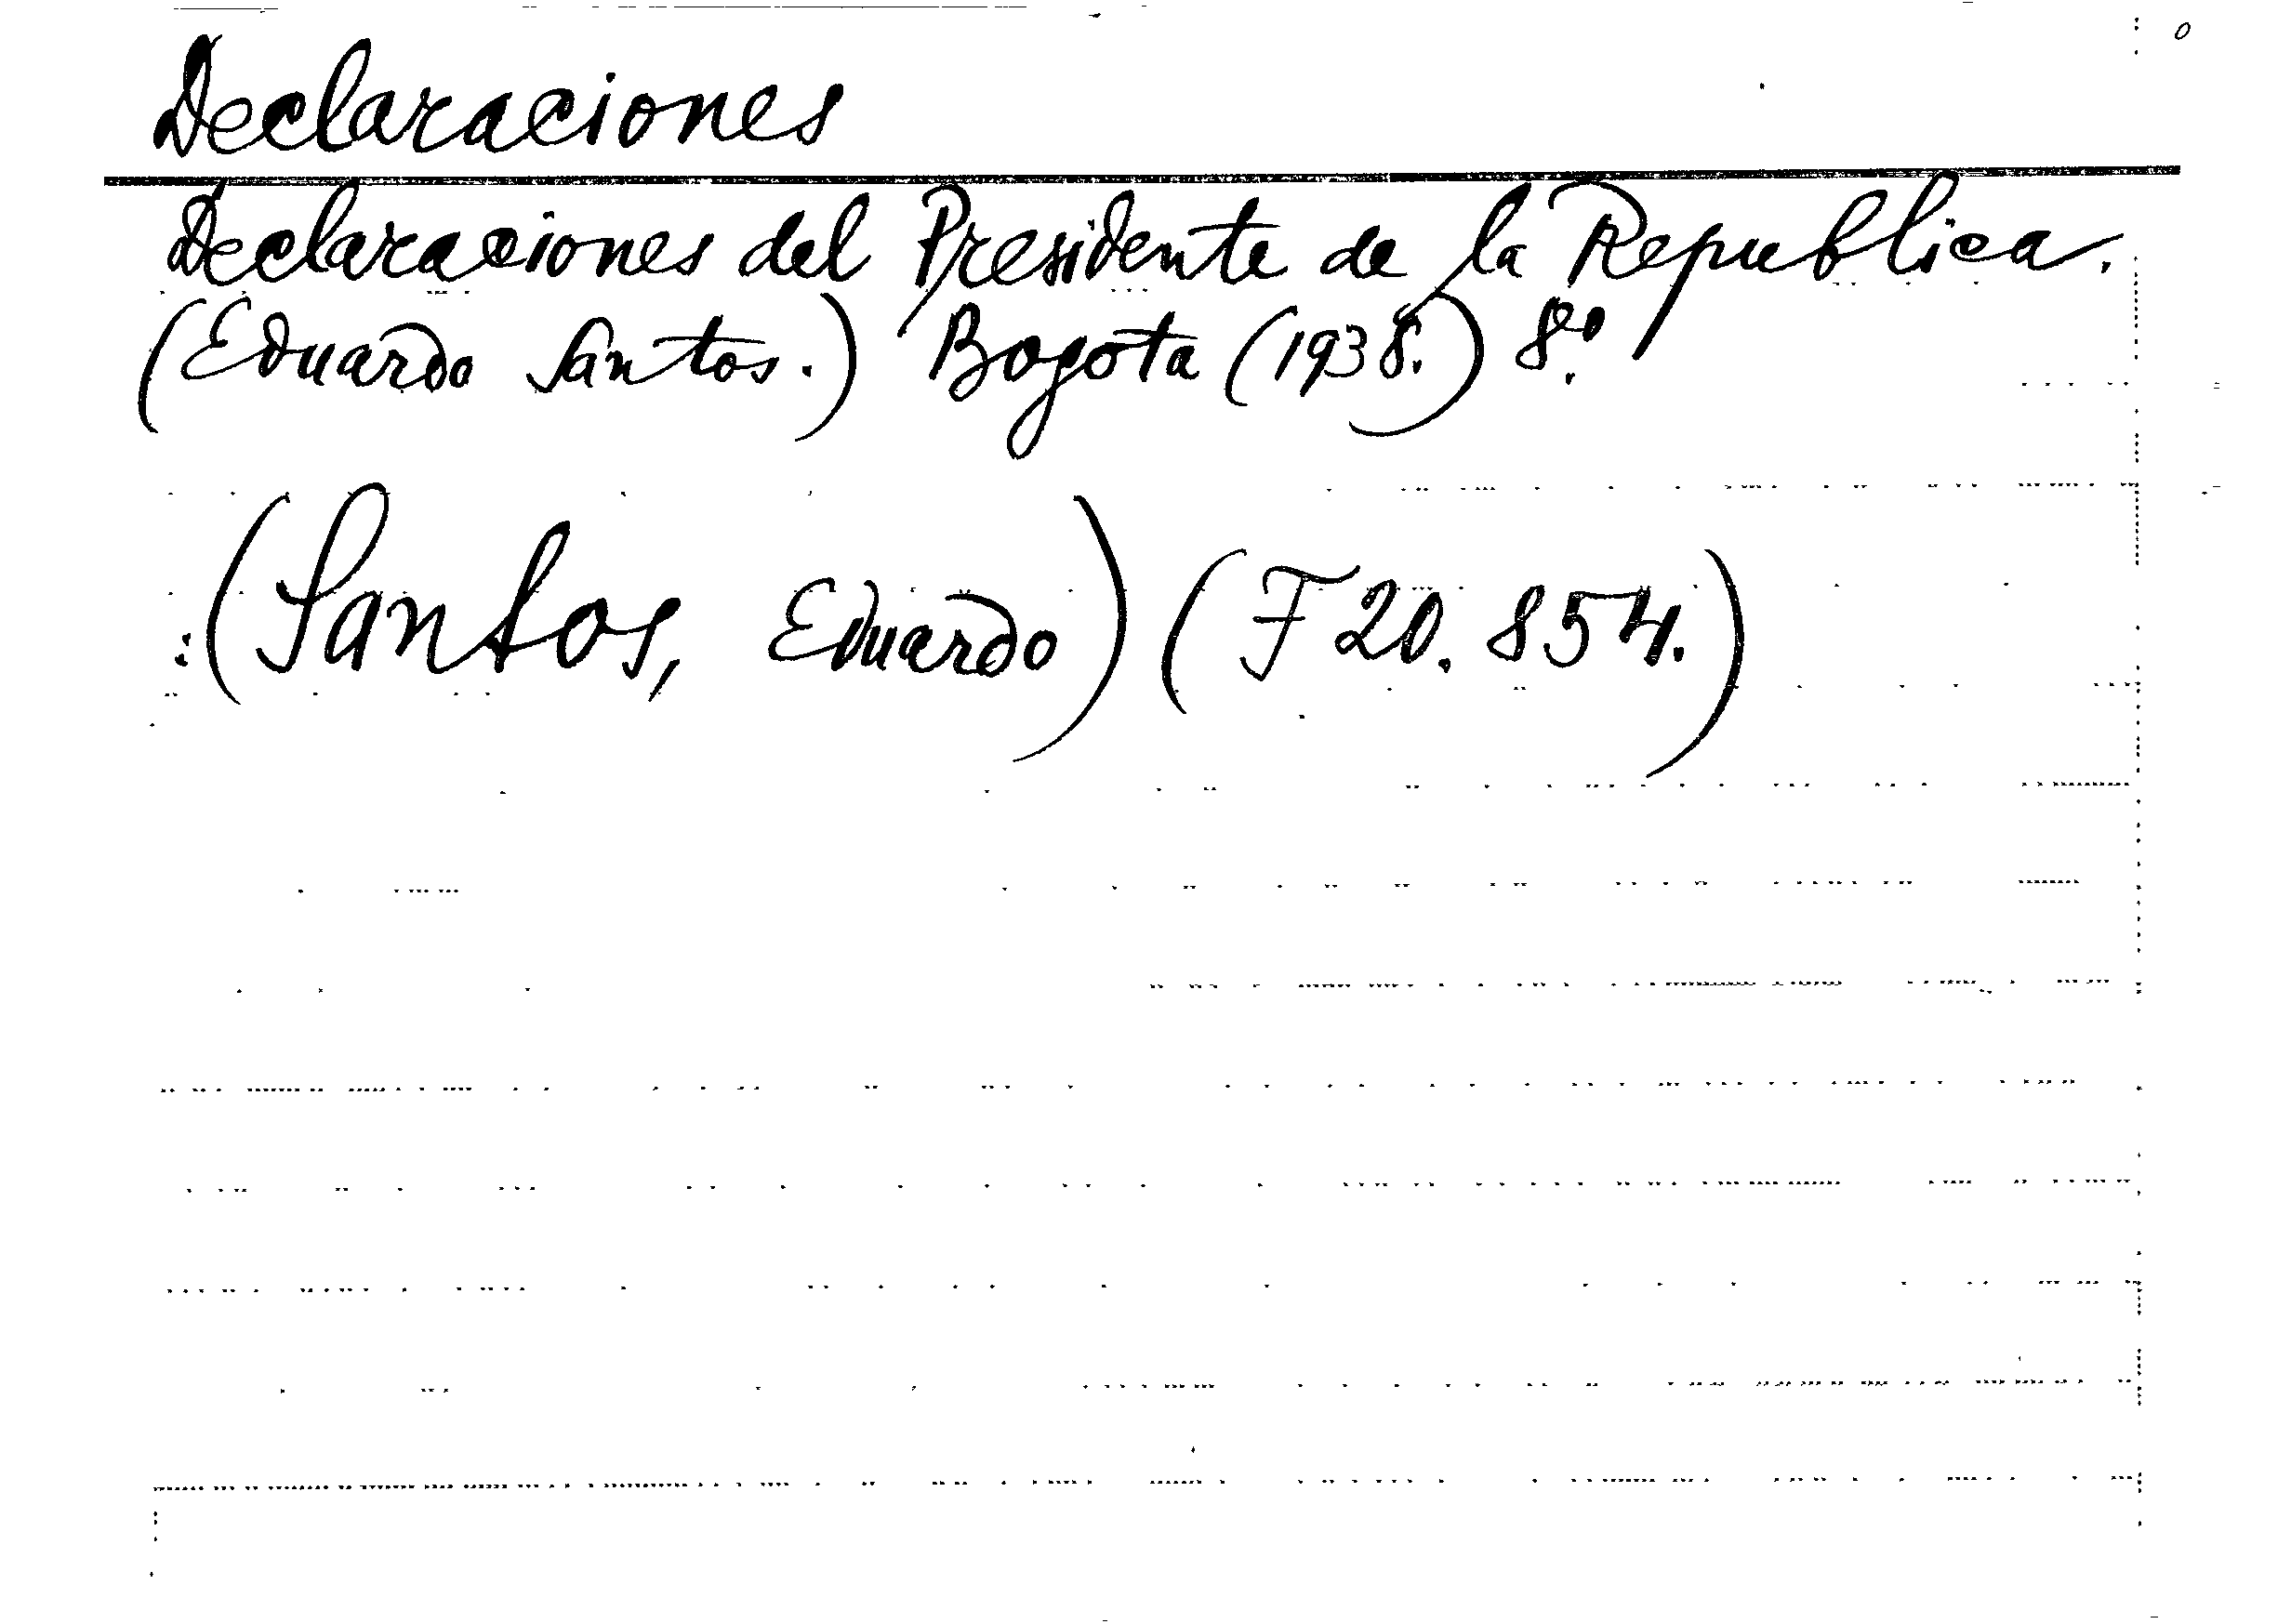 Declaraciones
Declaraciones del Presidente de la Republica.
(Eduardo Santos.) Bogota (1938.) 8.º
: (Santos, Eduardo) (F 20.854.)